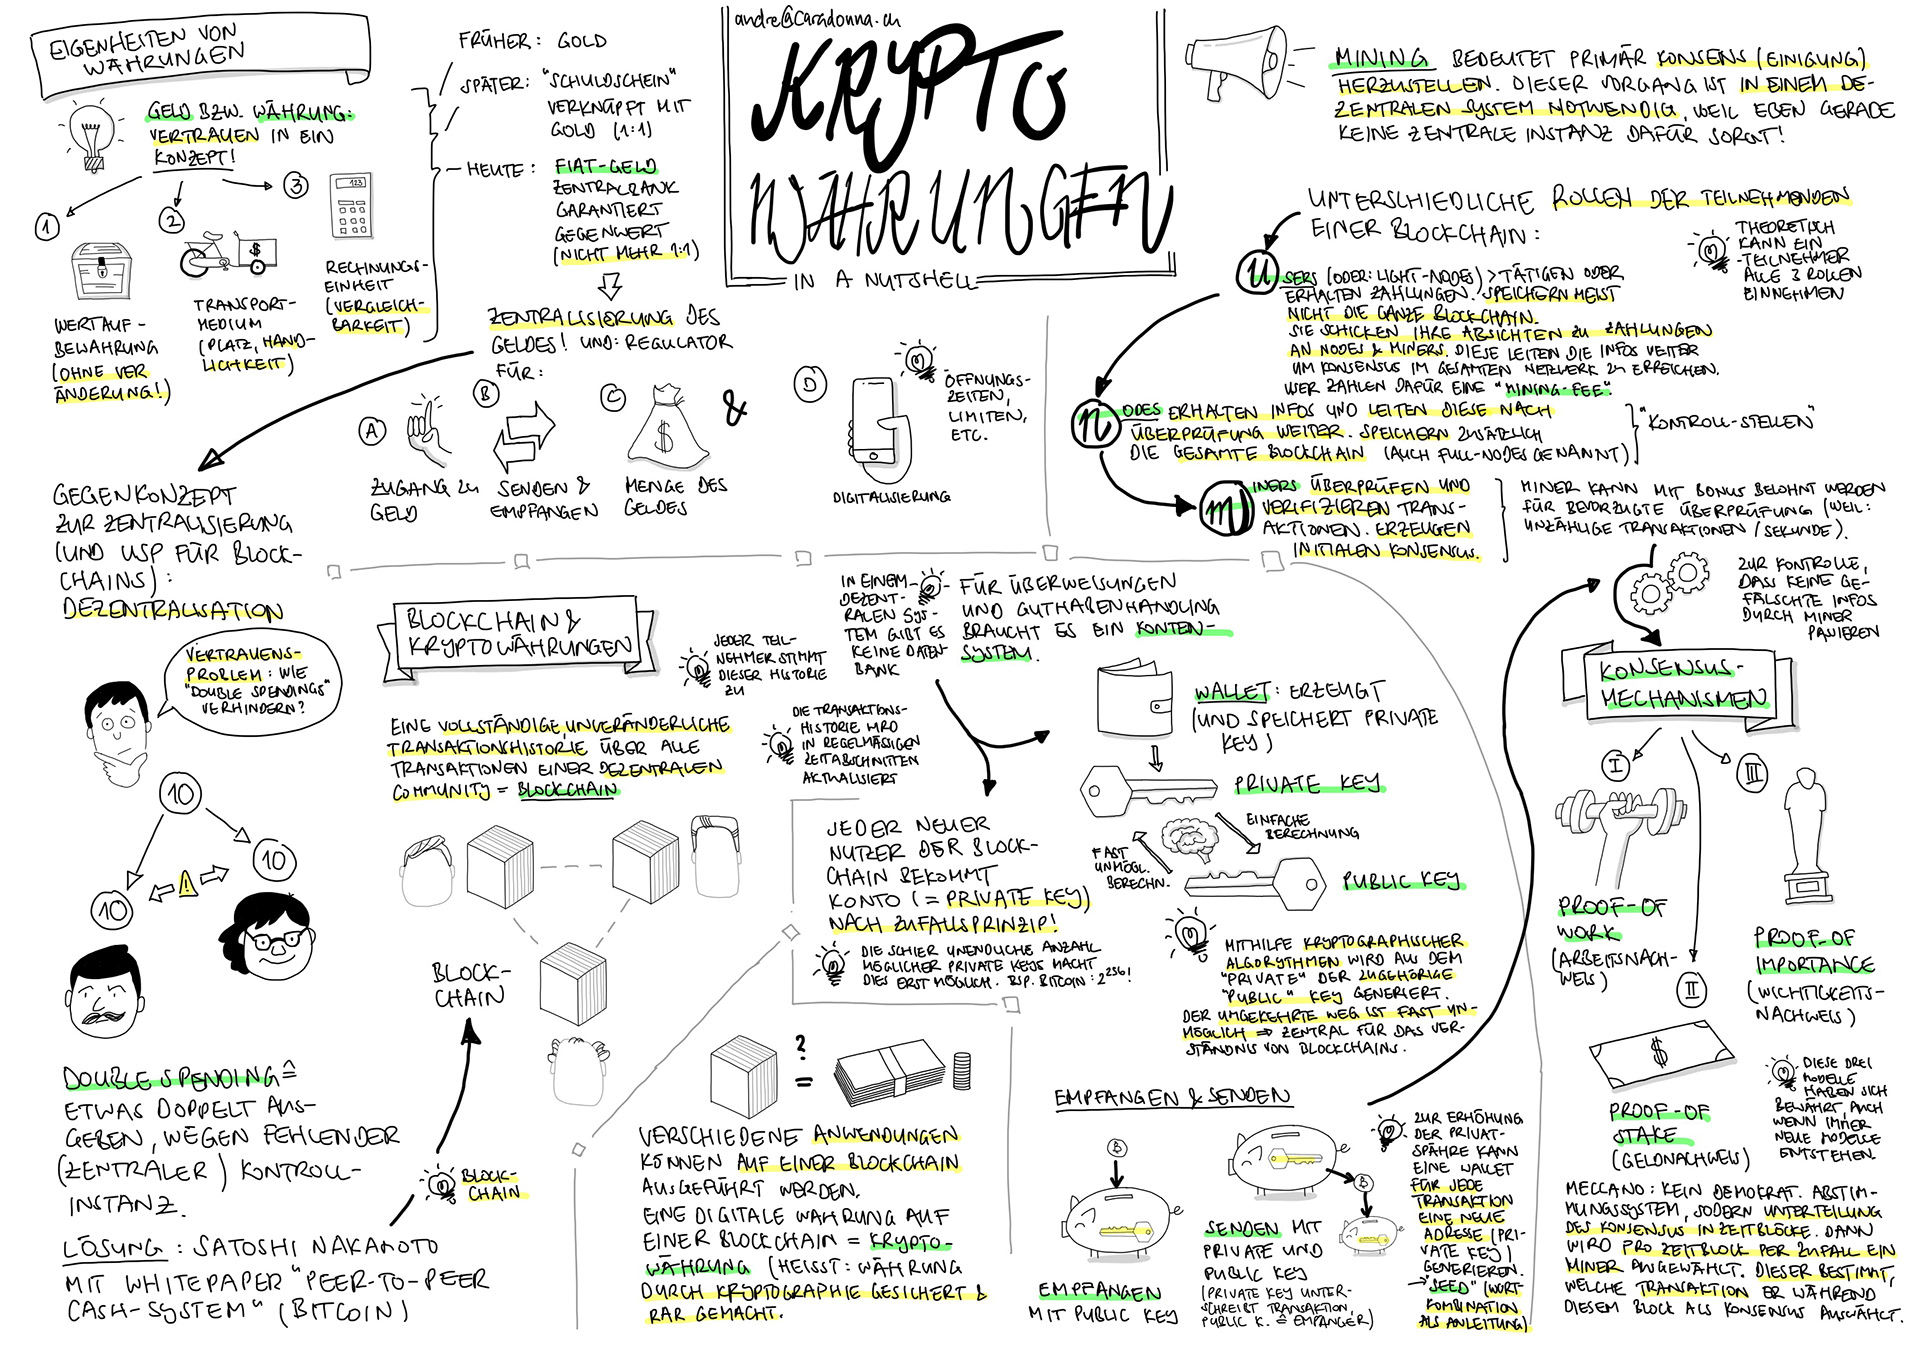 EIGENHEITEN VON
WÄHRUNGEN
GELD BZW. WÄHRUNG:
VERTRAUEN IN EIN
KONZEPT!
1
2
3
123
$
WERTAUF-
BEWAHRUNG
(OHNE VER
ÄNDERUNG!)
TRANSPORT-
MEDIUM
(PLATZ, HAND-
LICHKEIT)
RECHNUNGS-
EINHEIT
(VERGLEICH-
BARKEIT)
FRÜHER: GOLD
SPÄTER: "SCHULDSCHEIN"
VERKNÜPFT MIT
GOLD (1:1)
HEUTE: FIAT-GELD
ZENTRALBANK
GARANTIERT
GEGENWERT
(NICHT MEHR 1:1)
ZENTRALISIERUNG DES
GELDES! UND: REGULATOR
FÜR:
A
B
C
&
D
$
ZUGANG ZU
GELD
SENDEN &
EMPFANGEN
MENGE DES
GELDES
DIGITALISIERUNG
ÖFFNUNGS-
ZEITEN,
LIMITEN,
ETC.
andre@caradonna.ch
KRYPTO
WÄHRUNGEN
IN A NUTSHELL
MINING BEDEUTET PRIMÄR KONSENS (EINIGUNG)
HERZUSTELLEN. DIESER VORGANG IST IN EINEM DE-
ZENTRALEN SYSTEM NOTWENDIG, WEIL EBEN GERADE
KEINE ZENTRALE INSTANZ DAFÜR SORGT!
UNTERSCHIEDLICHE ROLLEN DER TEILNEHMENDEN
EINER BLOCKCHAIN:
THEORETISCH
KANN EIN
TEILNEHMER
ALLE 3 ROLLEN
EINNEHMEN
USERS (ODER: LIGHT-NODES) > TÄTIGEN ODER
ERHALTEN ZAHLUNGEN. SPEICHERN MEIST
NICHT DIE GANZE BLOCKCHAIN.
SIE SCHICKEN IHRE ABSICHTEN ZU ZAHLUNGEN
AN NODES & MINERS. DIESE LEITEN DIE INFOS WEITER
UM KONSENSUS IM GESAMTEN NETZWERK ZU ERREICHEN.
USER ZAHLEN DAFÜR EINE "MINING-FEE".
NODES ERHALTEN INFOS UND LEITEN DIESE NACH
ÜBERPRÜFUNG WEITER. SPEICHERN ZUSÄTZLICH
DIE GESAMTE BLOCKCHAIN (AUCH FULL-NODES GENANNT)
"KONTROLL-STELLEN"
MINERS ÜBERPRÜFEN UND
VERIFIZIEREN TRANS-
AKTIONEN. ERZEUGEN
INITIALEN KONSENSUS.
MINER KANN MIT BONUS BELOHNT WERDEN
FÜR BEVORZUGTE ÜBERPRÜFUNG (WEIL:
UNZÄHLIGE TRANSAKTIONEN / SEKUNDE).
ZUR KONTROLLE,
DASS KEINE GE-
FÄLSCHTE INFOS
DURCH MINER
PASSIEREN
GEGENKONZEPT
ZUR ZENTRALISIERUNG
(UND USP FÜR BLOCK-
CHAINS):
DEZENTRALISATION
VERTRAUENS-
PROBLEM: WIE
"DOUBLE SPENDINGS"
VERHINDERN?
10
10
10
!
DOUBLE SPENDING ≙
ETWAS DOPPELT AUS-
GEBEN, WEGEN FEHLENDER
(ZENTRALER) KONTROLL-
INSTANZ.
LÖSUNG: SATOSHI NAKAMOTO
MIT WHITEPAPER "PEER-TO-PEER
CASH-SYSTEM" (BITCOIN)
BLOCK-
CHAIN
BLOCKCHAIN &
KRYPTOWÄHRUNGEN
JEDER TEIL-
NEHMER STIMMT
DIESER HISTORIE
ZU
EINE VOLLSTÄNDIGE, UNVERÄNDERLICHE
TRANSAKTIONSHISTORIE ÜBER ALLE
TRANSAKTIONEN EINER DEZENTRALEN
COMMUNITY = BLOCKCHAIN
DIE TRANSAKTIONS-
HISTORIE WIRD
IN REGELMÄSSIGEN
ZEITABSCHNITTEN
AKTUALISIERT
BLOCK-
CHAIN
? =
VERSCHIEDENE ANWENDUNGEN
KÖNNEN AUF EINER BLOCKCHAIN
AUSGEFÜHRT WERDEN.
EINE DIGITALE WÄHRUNG AUF
EINER BLOCKCHAIN = KRYPTO-
WÄHRUNG (HEISST: WÄHRUNG
DURCH KRYPTOGRAPHIE GESICHERT &
RAR GEMACHT.
IN EINEM
DEZENT-
RALEN SYS-
TEM GIBT ES
KEINE DATEN-
BANK
FÜR ÜBERWEISUNGEN
UND GUTHABENHANDLING
BRAUCHT ES EIN KONTEN-
SYSTEM.
WALLET: ERZEUGT
(UND SPEICHERT PRIVATE
KEY)
PRIVATE KEY
EINFACHE
BERECHNUNG
FAST
UNMÖGL.
BERECHN.
PUBLIC KEY
JEDER NEUER
NUTZER DER BLOCK-
CHAIN BEKOMMT
KONTO (= PRIVATE KEY)
NACH ZUFALLSPRINZIP!
DIE SCHIER UNENDLICHE ANZAHL
MÖGLICHER PRIVATE KEYS MACHT
DIES ERST MÖGLICH. BSP. BITCOIN: 2²⁵⁶!
MITHILFE KRYPTOGRAPHISCHER
ALGORYTHMEN WIRD AUS DEM
"PRIVATE" DER ZUGEHÖRIGE
"PUBLIC" KEY GENERIERT.
DER UMGEKEHRTE WEG IST FAST UN-
MÖGLICH ⇒ ZENTRAL FÜR DAS VER-
STÄNDNIS VON BLOCKCHAINS.
EMPFANGEN & SENDEN
B
B
B
EMPFANGEN
MIT PUBLIC KEY
SENDEN MIT
PRIVATE UND
PUBLIC KEY
(PRIVATE KEY UNTER-
SCHREIBT TRANSAKTION,
PUBLIC K. ≙ EMPFÄNGER)
ZUR ERHÖHUNG
DER PRIVAT-
SPÄHRE KANN
EINE WALLET
FÜR JEDE
TRANSAKTION
EINE NEUE
ADRESSE (PRI-
VATE KEY)
GENERIEREN.
→ "SEED" (WORT-
KOMBINATION
ALS ANLEITUNG)
KONSENSUS-
MECHANISMEN
I
III
II
PROOF-OF
WORK
(ARBEITSNACH-
WEIS)
PROOF-OF
IMPORTANCE
(WICHTIGKEITS-
NACHWEIS)
$
PROOF-OF
STAKE
(GELDNACHWEIS)
DIESE DREI
MODELLE
HABEN SICH
BEWÄHRT, AUCH
WENN IMMER
NEUE MODELLE
ENTSTEHEN.
MECCANO: KEIN DEMOKRAT. ABSTIM-
MUNGSSYSTEM, SODERN UNTERTEILUNG
DES KONSENSUS IN ZEITBLÖCKE. DANN
WIRD PRO ZEITBLOCK PER ZUFALL EIN
MINER AUSGEWÄHLT. DIESER BESTIMMT,
WELCHE TRANSAKTION ER WÄHREND
DIESEM BLOCK ALS KONSENSUS AUSWÄHLT.